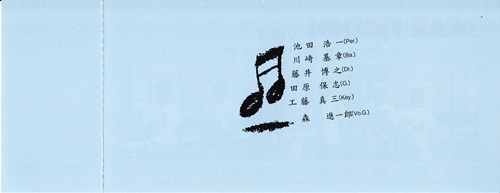 池田 浩一(Per.)
川崎 基章(Ba.)
藤井 博之(Dr.)
田原 保志(G.)
工藤 真三(Key.)
森 進一郎(Vo.G.)